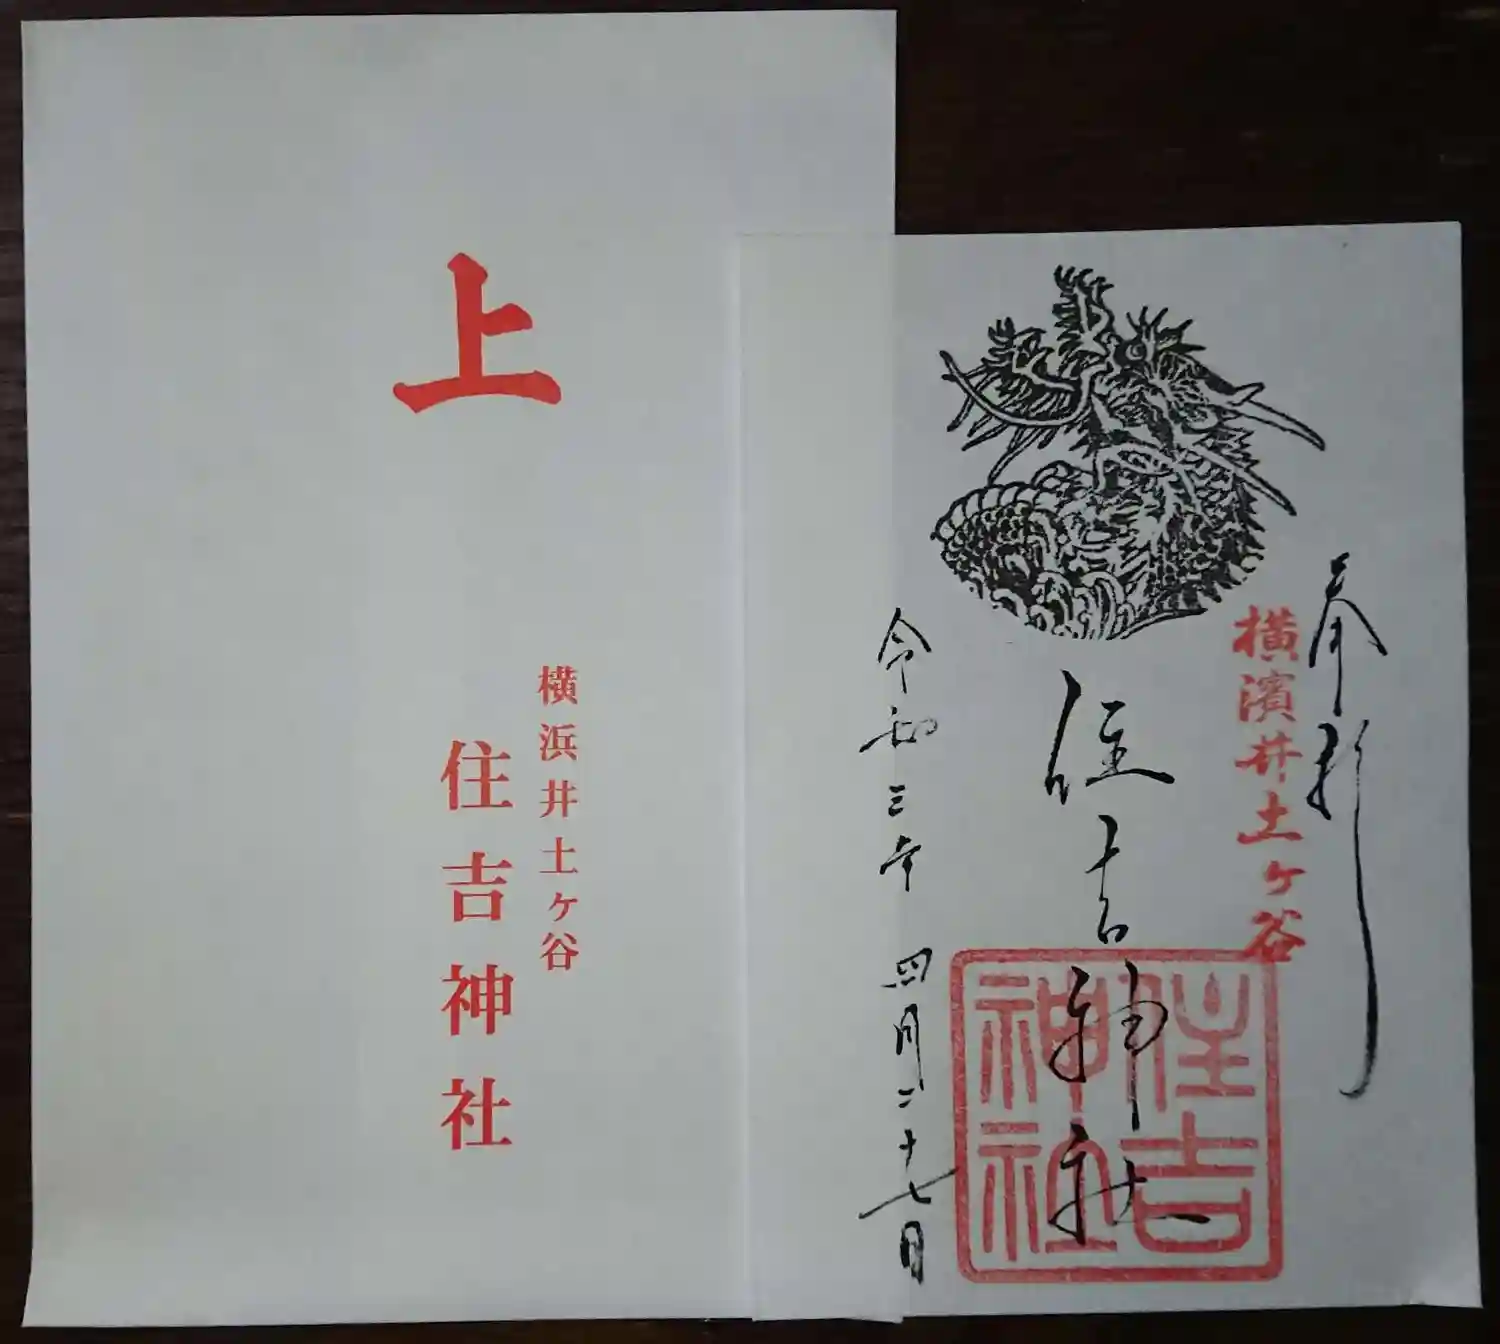 上
横浜井土ケ谷
住吉神社
奉拝
横濱井土ケ谷
住吉神社
住吉神社
令和三年 四月二十七日